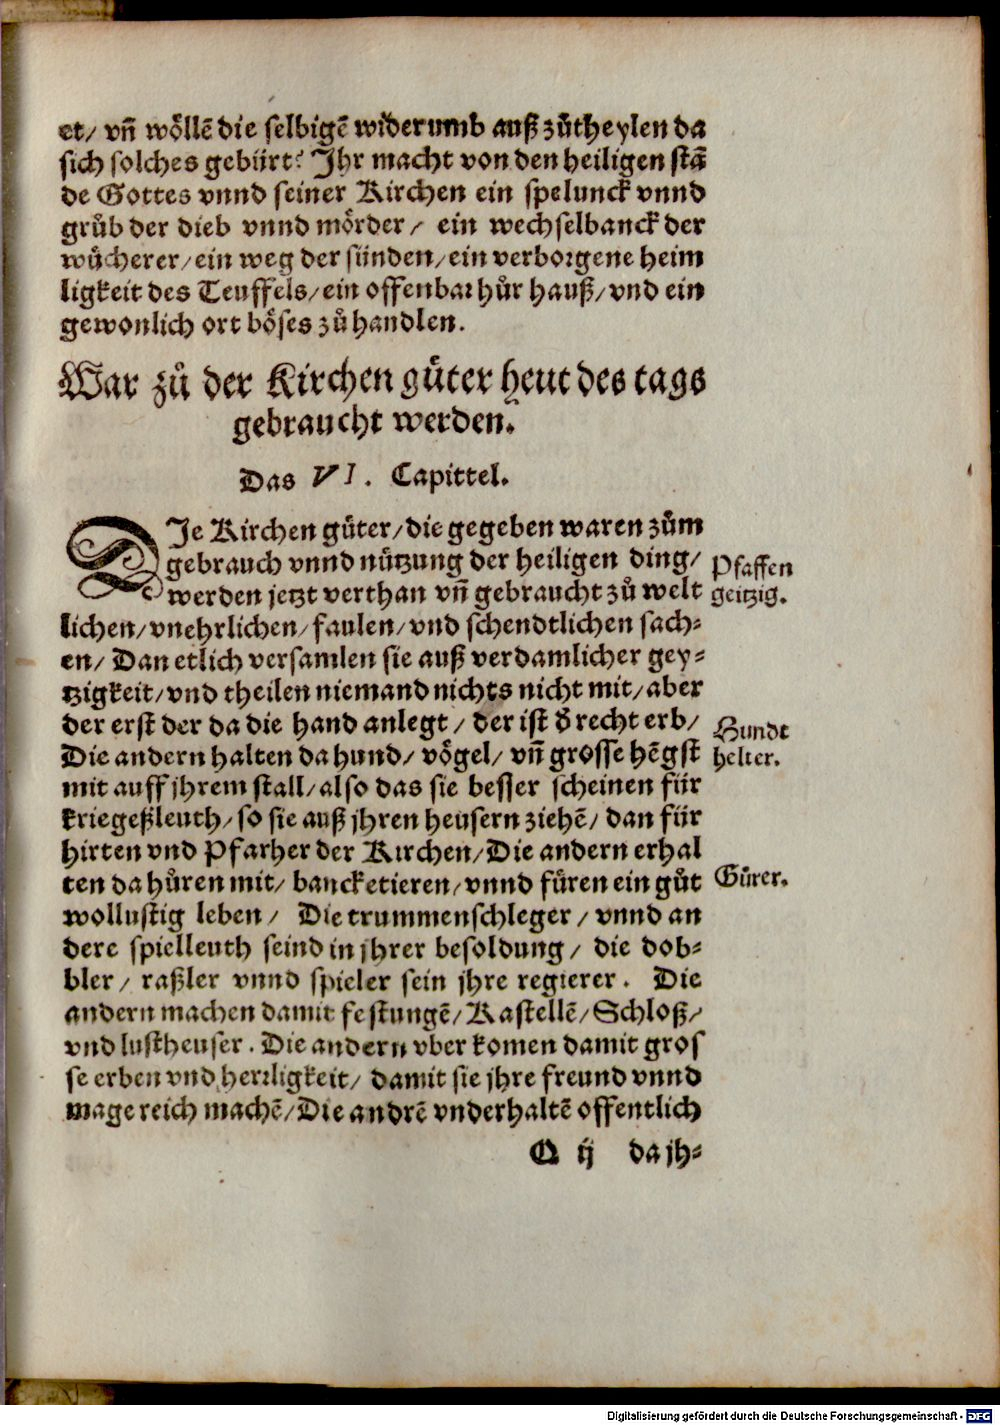 et/ vn̄ wöllē die selbigē widerumb auß zůtheylen da
sich solches gebürt? Ihr macht von den heiligen stā
de Gottes vnnd seiner Kirchen ein spelunck vnnd
grůb der dieb vnnd mörder/ ein wechselbanck der
wůcherer/ ein weg der sünden/ ein verborgene heim
ligkeit des Teuffels/ ein offenbar hůr hauß/ vnd ein
gewonlich ort böses zů handlen.
War zů der Kirchen gůter heut des tags
gebraucht werden.
Das VI. Capittel.
DIe Kirchen gůter/ die gegeben waren zům
gebrauch vnnd nützung der heiligen ding/
werden jetzt verthan vn̄ gebraucht zů welt
lichen/ vnehrlichen/ faulen/ vnd schendtlichen sach-
en/ Dan etlich versamlen sie auß verdamlicher gey-
tzigkeit/ vnd theilen niemand nichts nicht mit/ aber
der erst der da die hand anlegt/ der ist d̕ recht erb/
Die andern halten da hund/ vögel/ vn̄ grosse hēgst
mit auff jhrem stall/ also das sie besser scheinen für
kriegeßleuth/ so sie auß jhren heusern ziehē/ dan für
hirten vnd Pfarher der Kirchen/ Die andern erhal
ten da hůren mit/ bancketieren/ vnnd füren ein gůt
wollustig leben/ Die trummenschleger/ vnnd an
dere spielleuth seind in jhrer besoldung/ die dob-
bler/ raßler vnnd spieler sein jhre regierer. Die
andern machen damit festungē/ Kastellē/ Schloß/
vnd lustheuser. Die andern vber komen damit gros
se erben vnd herrligkeit/ damit sie jhre freund vnnd
mage reich machē/ Die andrē vnderhaltē offentlich
Q ij da jh-
Pfaffen
geitzig.
Hundt
helter.
Hůrer.
Digitalisierung gefördert durch die Deutsche Forschungsgemeinschaft - DFG